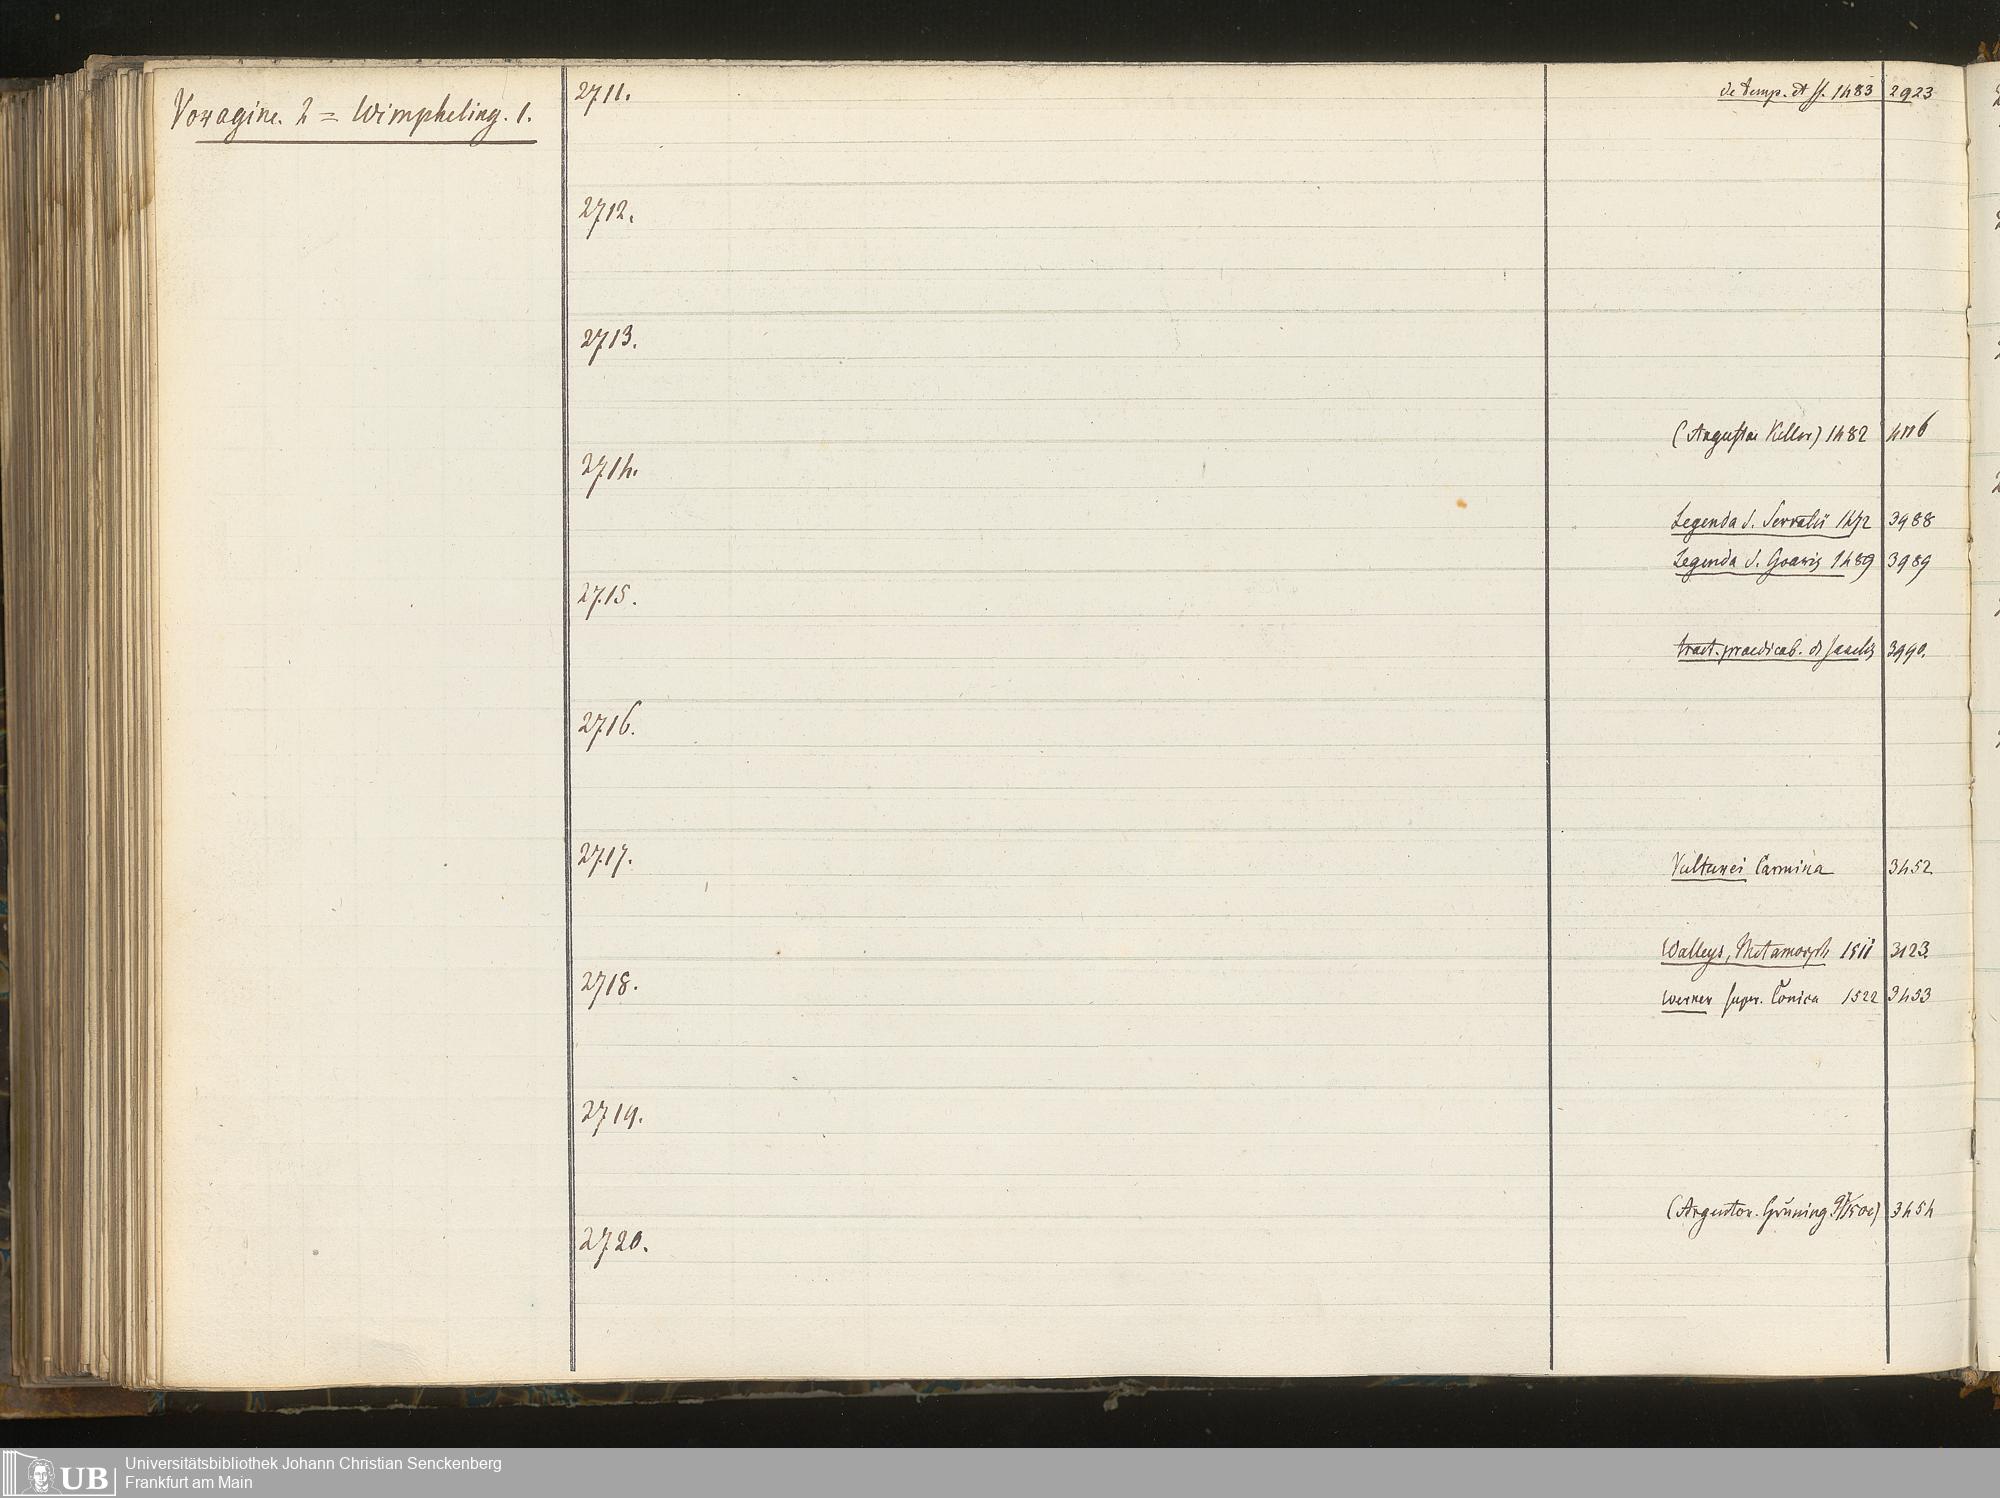 Voragine. 2 = Wimpheling. 1.
2711.
de temp. et ff. 1483 2923
2712.
2713.
(Augustae Keller) 1482 4116
2714.
Legenda S. Servatii 1472 3988
Legenda S. Goaris 1489 3989
2715.
tract. praedicab. d 3990.
2716.
2717.
Vulturei Carmina 3452
Walleys, Metamorph 1511 3123.
2718.
Werner super. Tonica 1522 3453
2719.
(Argentor. Grüning. 3454
2720.
UB
Universitätsbibliothek Johann Christian Senckenberg
Frankfurt am Main